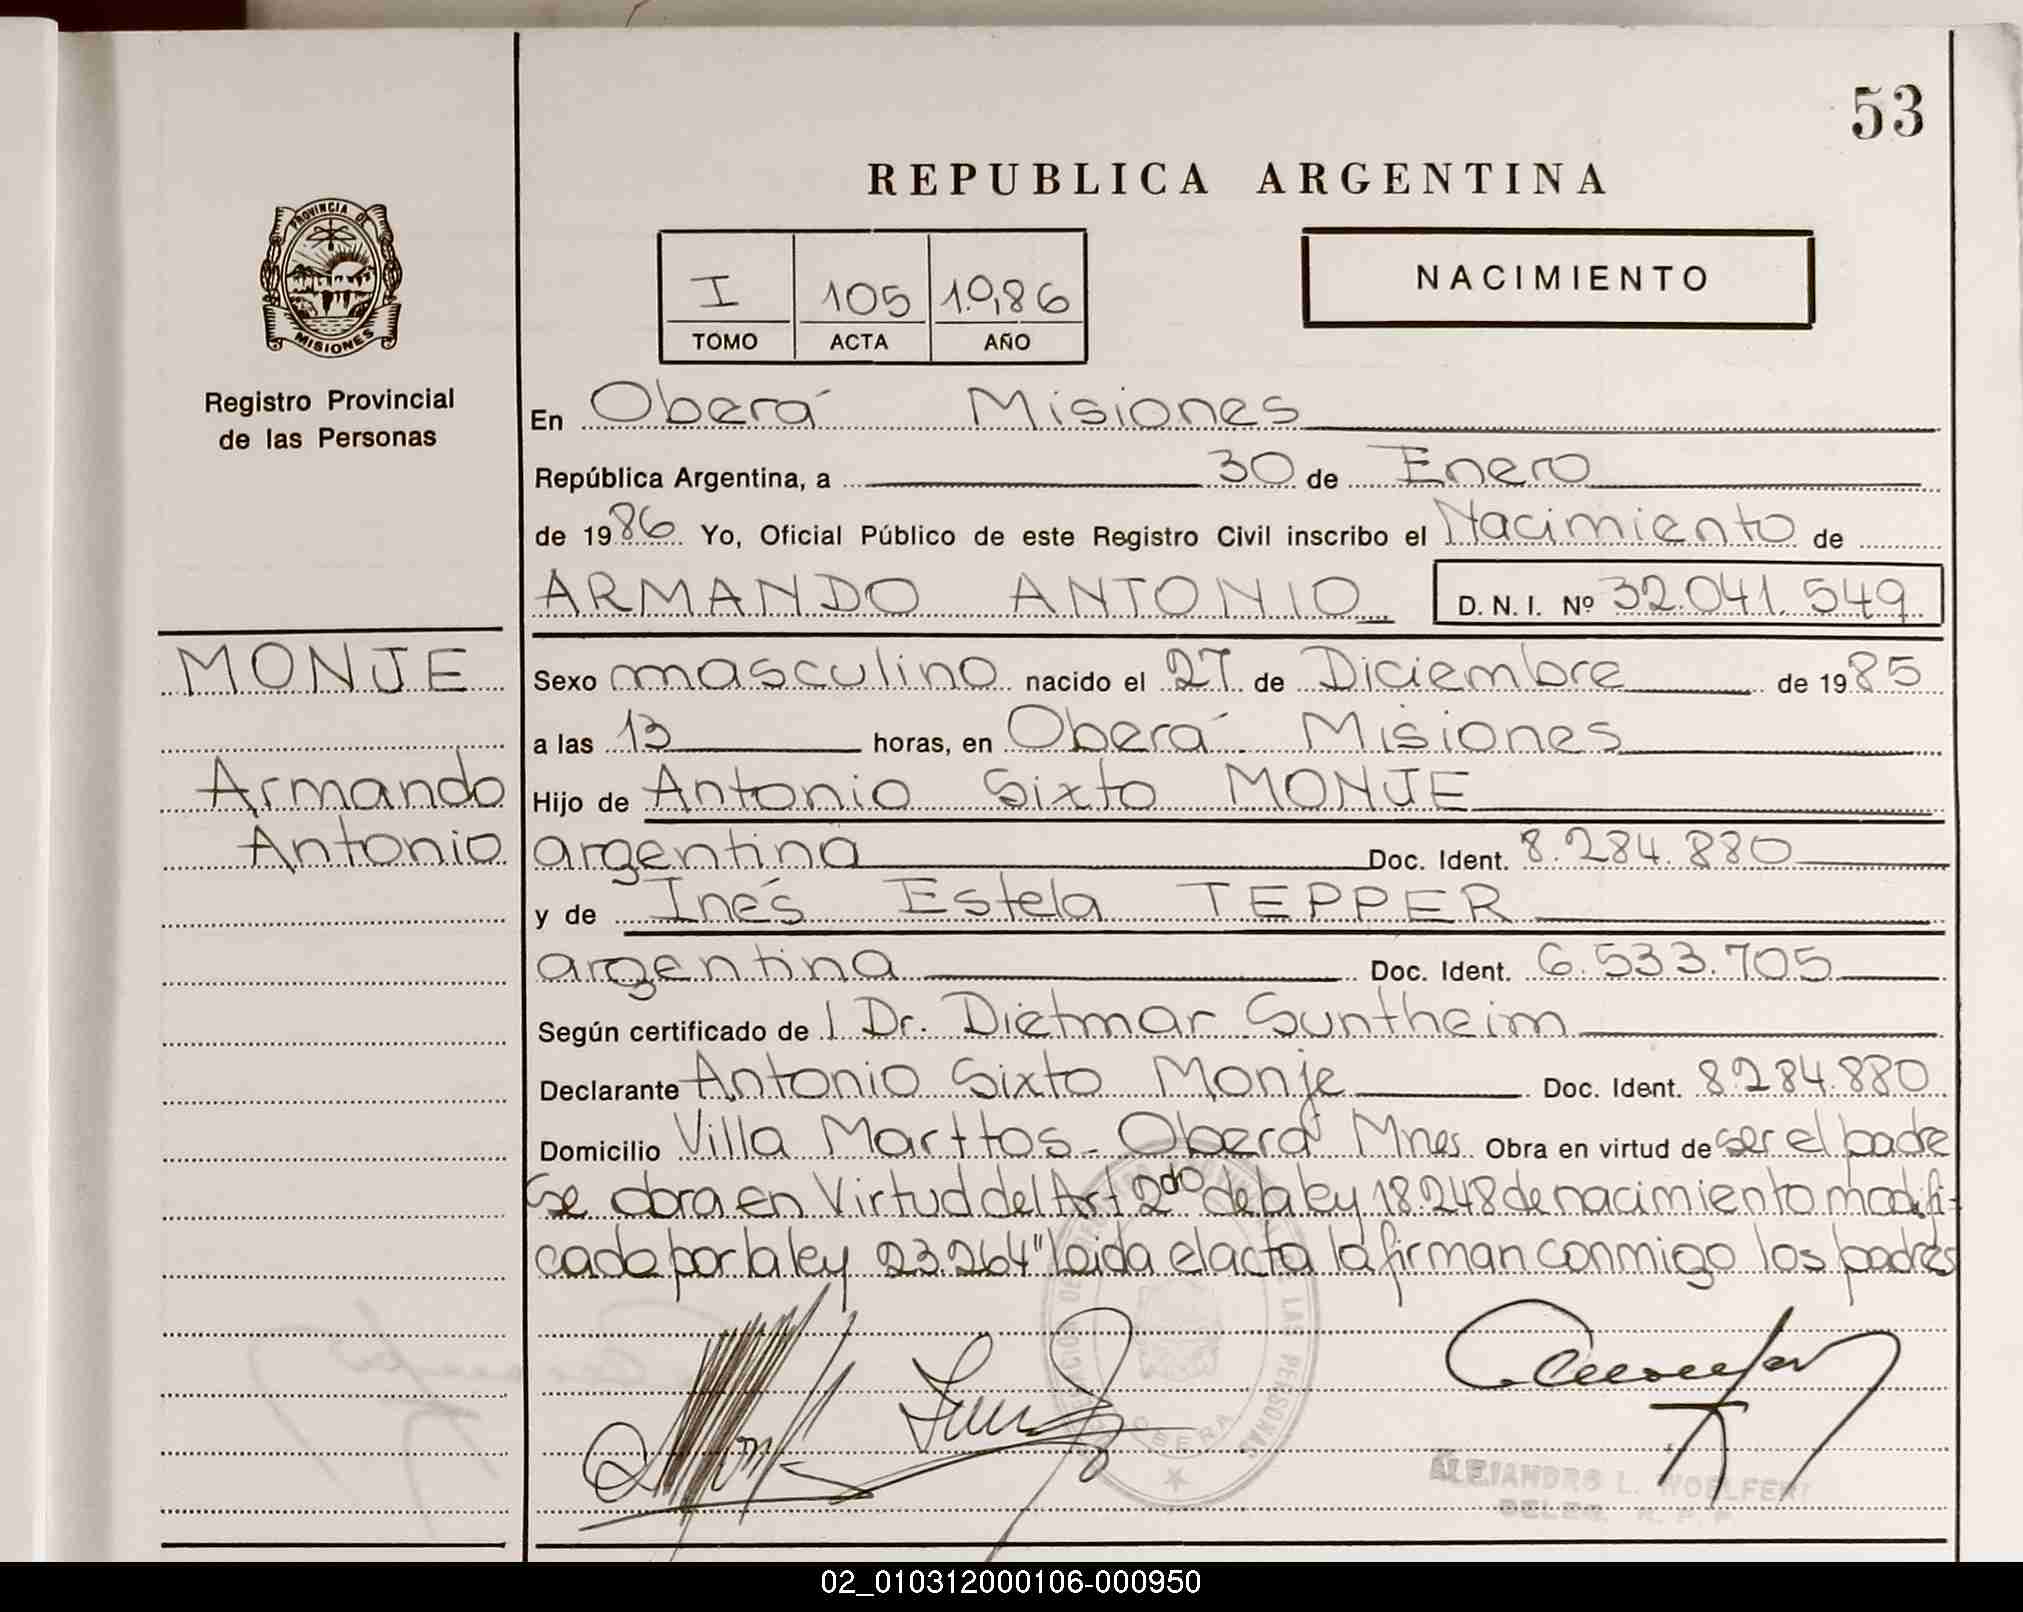 53
REPUBLICA ARGENTINA
PROVINCIA DE
MISIONES
Registro Provincial
de las Personas
I 105 1.986
TOMO ACTA AÑO
NACIMIENTO
En Oberá Misiones
República Argentina, a 30 de Enero
de 1986 Yo, Oficial Público de este Registro Civil inscribo el Nacimiento de
ARMANDO ANTONIO D. N. I. Nº 32.041.549
MONJE
Armando
Antonio
Sexo masculino nacido el 27 de Diciembre de 1985
a las 13 horas, en Oberá Misiones
Hijo de Antonio Sixto MONJE
argentina Doc. Ident. 8.284.880
y de Inés Estela TEPPER
argentina Doc. Ident. 6.533.705
Según certificado de l Dr. Dietmar Suntheim
Declarante Antonio Sixto Monje Doc. Ident. 8.284.880
Domicilio Villa Marttos - Oberá Mnes. Obra en virtud de ser el padre
Se obra en Virtud del Art 2do de la ley 18.248 de nacimiento modifi-
cada por la ley 23.264" Leida el acta la firman conmigo los padres
DE LAS PERSONAS
OBERA
ALEJANDRO L. WOELFERT
DELEG. R. P. P.
02_010312000106-000950